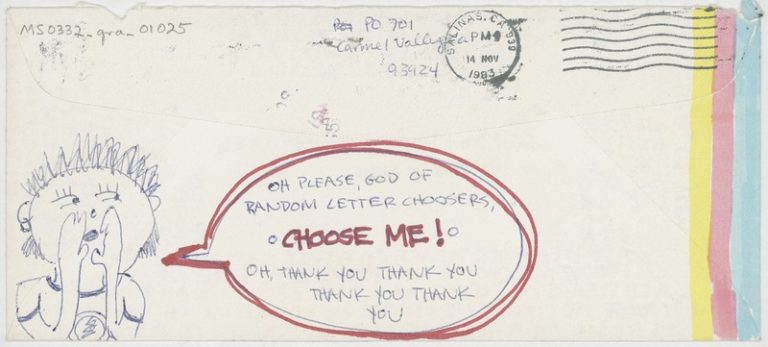 MS0332_gra_01025
PO 701
Carmel Valley, Ca
93924
SALINAS, CA 939
PM
14 NOV
1983
OH PLEASE, GOD OF
RANDOM LETTER CHOOSERS,
CHOOSE ME!
OH, THANK YOU THANK YOU
THANK YOU THANK
YOU